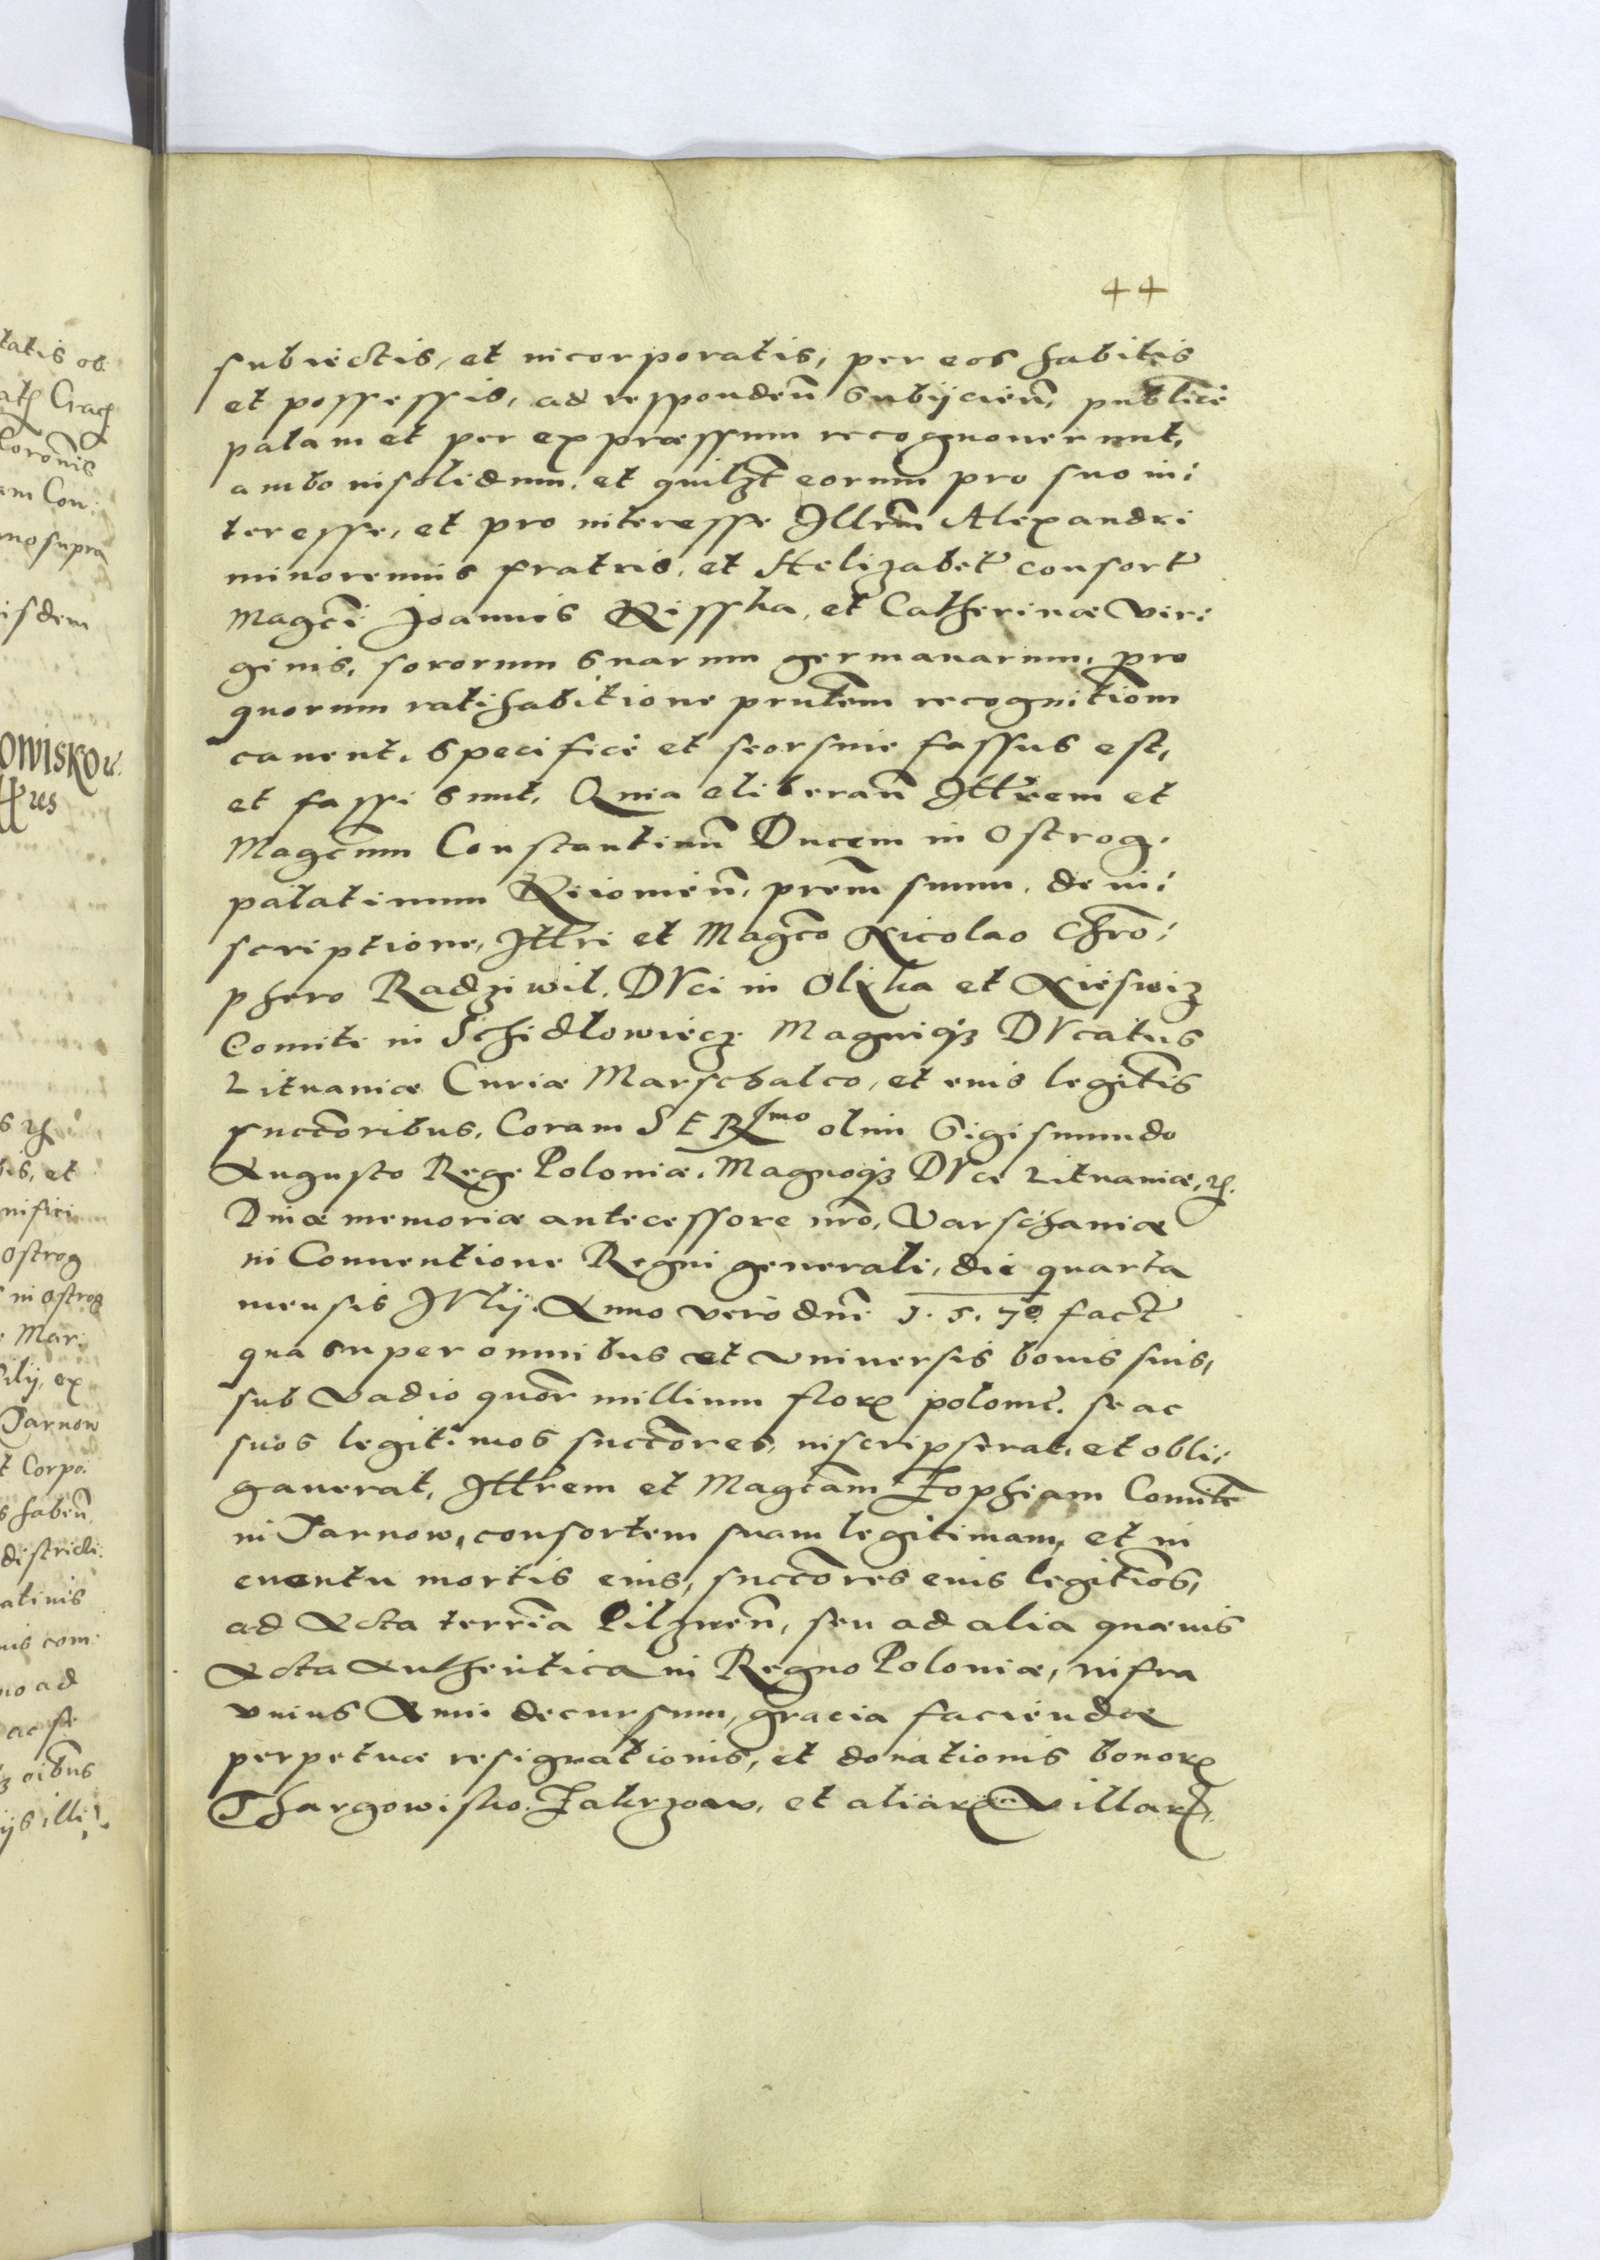 44
subiectis, et incorporatis, per eos habitis
et possessis, ad responden̄ subijcien̄, publicè
palam et per expraessum recognouerunt,
ambo insolidum, et quilꝫt eorum pro suo in:
teresse, et pro interesse Illrm̄ Alexandri
minorennis fratris, et Helizabet̄ consort̄
Magc̄i Joannis Kisska, et Catherinæ Vir:
ginis, sororum suarum germanarum, pro
quorum ratihabitione prn̄tem recognitiōm
cauent, specificè et seorsiue fassus est,
et fassi sunt, Quia eliberan̄ Illr̄em et
Magc̄um Constantinū Ducem in Ostrog,
palatinum Kiiouien̄, prēm suum, de in:
scriptione, Illri et Magc̄o Nicolao Chrō:
phero Radziwil, DVci in Olika et Niéswiz
Comiti in Schidlowiécz Magniqꝫ DVcatus
Lituaniæ Curiæ Marschalco, et eius legit̄is
succ̄oribus, Coram SERmo olim Sigismundo
Augusto Rege Poloniæ, Magnoqꝫ DVce Lituaniæ, ꝛc.
Diuæ memoriæ antecessore nr̄o, Varschauiæ
in Conuentione Regni generali, die quarta
mensis IVlij Anno verò dn̄i 1.5.70. fact̄
qua super omnibus et vniuersis bonis suis,
sub Vadio quōr millium floꝝ polonic̄. se ac
suos legitimos succ̄ores, inscripserat, et obli:
gauerat, Illr̄em et Magc̄am Zophiam Comit̄e
in Tarnow, consortem suam legitimam, et in
euentu mortis eius, succ̄ores eius legit̄ios,
ad Acta terrīa Pilznen̄, seu ad alia quæuis
Acta Authentica in Regno Poloniæ, infra
vnius Anni decursum, gracia faciendæ
perpetuæ resignationis, et donationis bonoꝝ
Thargowisko, Zakrzow, et aliaꝝ Villaꝝ,